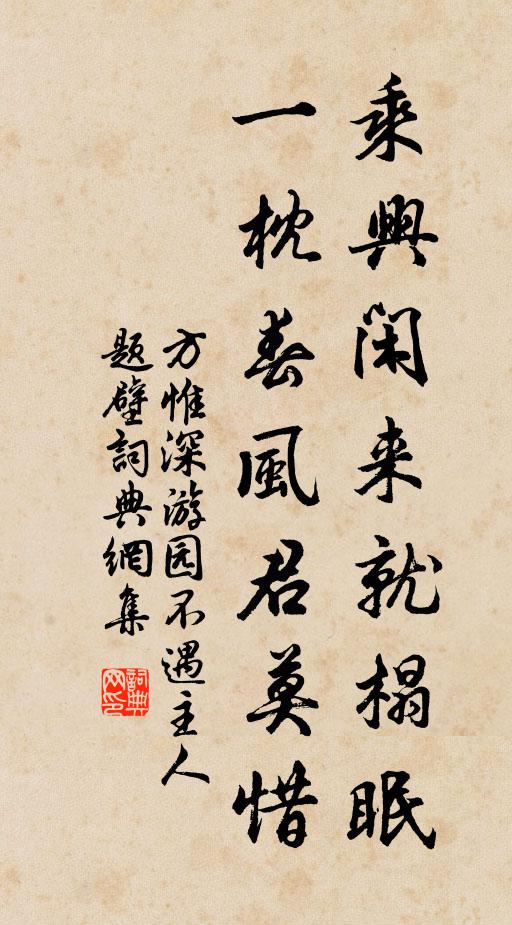 乘興閑来就榻眠
一枕春風君莫惜
方惟深游园不遇主人
题壁詞典網集
詞典网印